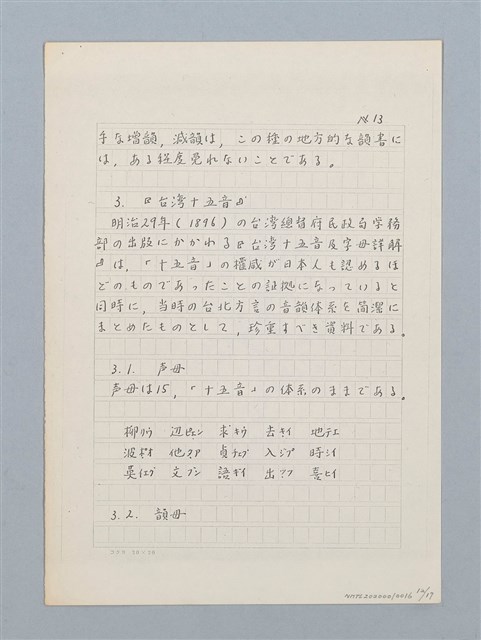 № 13
手な増韻，減韻は，この種の地方的な韻書に
は，ある程度免れないことである。
3. 『台湾十五音』
明治29年(1896)の台湾総督府民政局学務
部の出版にかかわる『台湾十五音及字母詳解
』は，「十五音」の権威が日本人も認めるほ
どのものであったことの証拠になっていると
同時に，当時の台北方言の音韻体系を簡潔に
まとめたものとして，珍重すべき資料である。
3.1. 声母
声母は15，「十五音」の体系のままである。
柳リウ 辺ピェン 求キウ 去キイ 地テエ
波ポオ 他タア 貞チェン 入ジプ 時シイ
英イェン 文ブン 語ギイ 出ツフ 喜ヒイ
3.2. 韻母
20×20
NMTL200000/0016 12/17